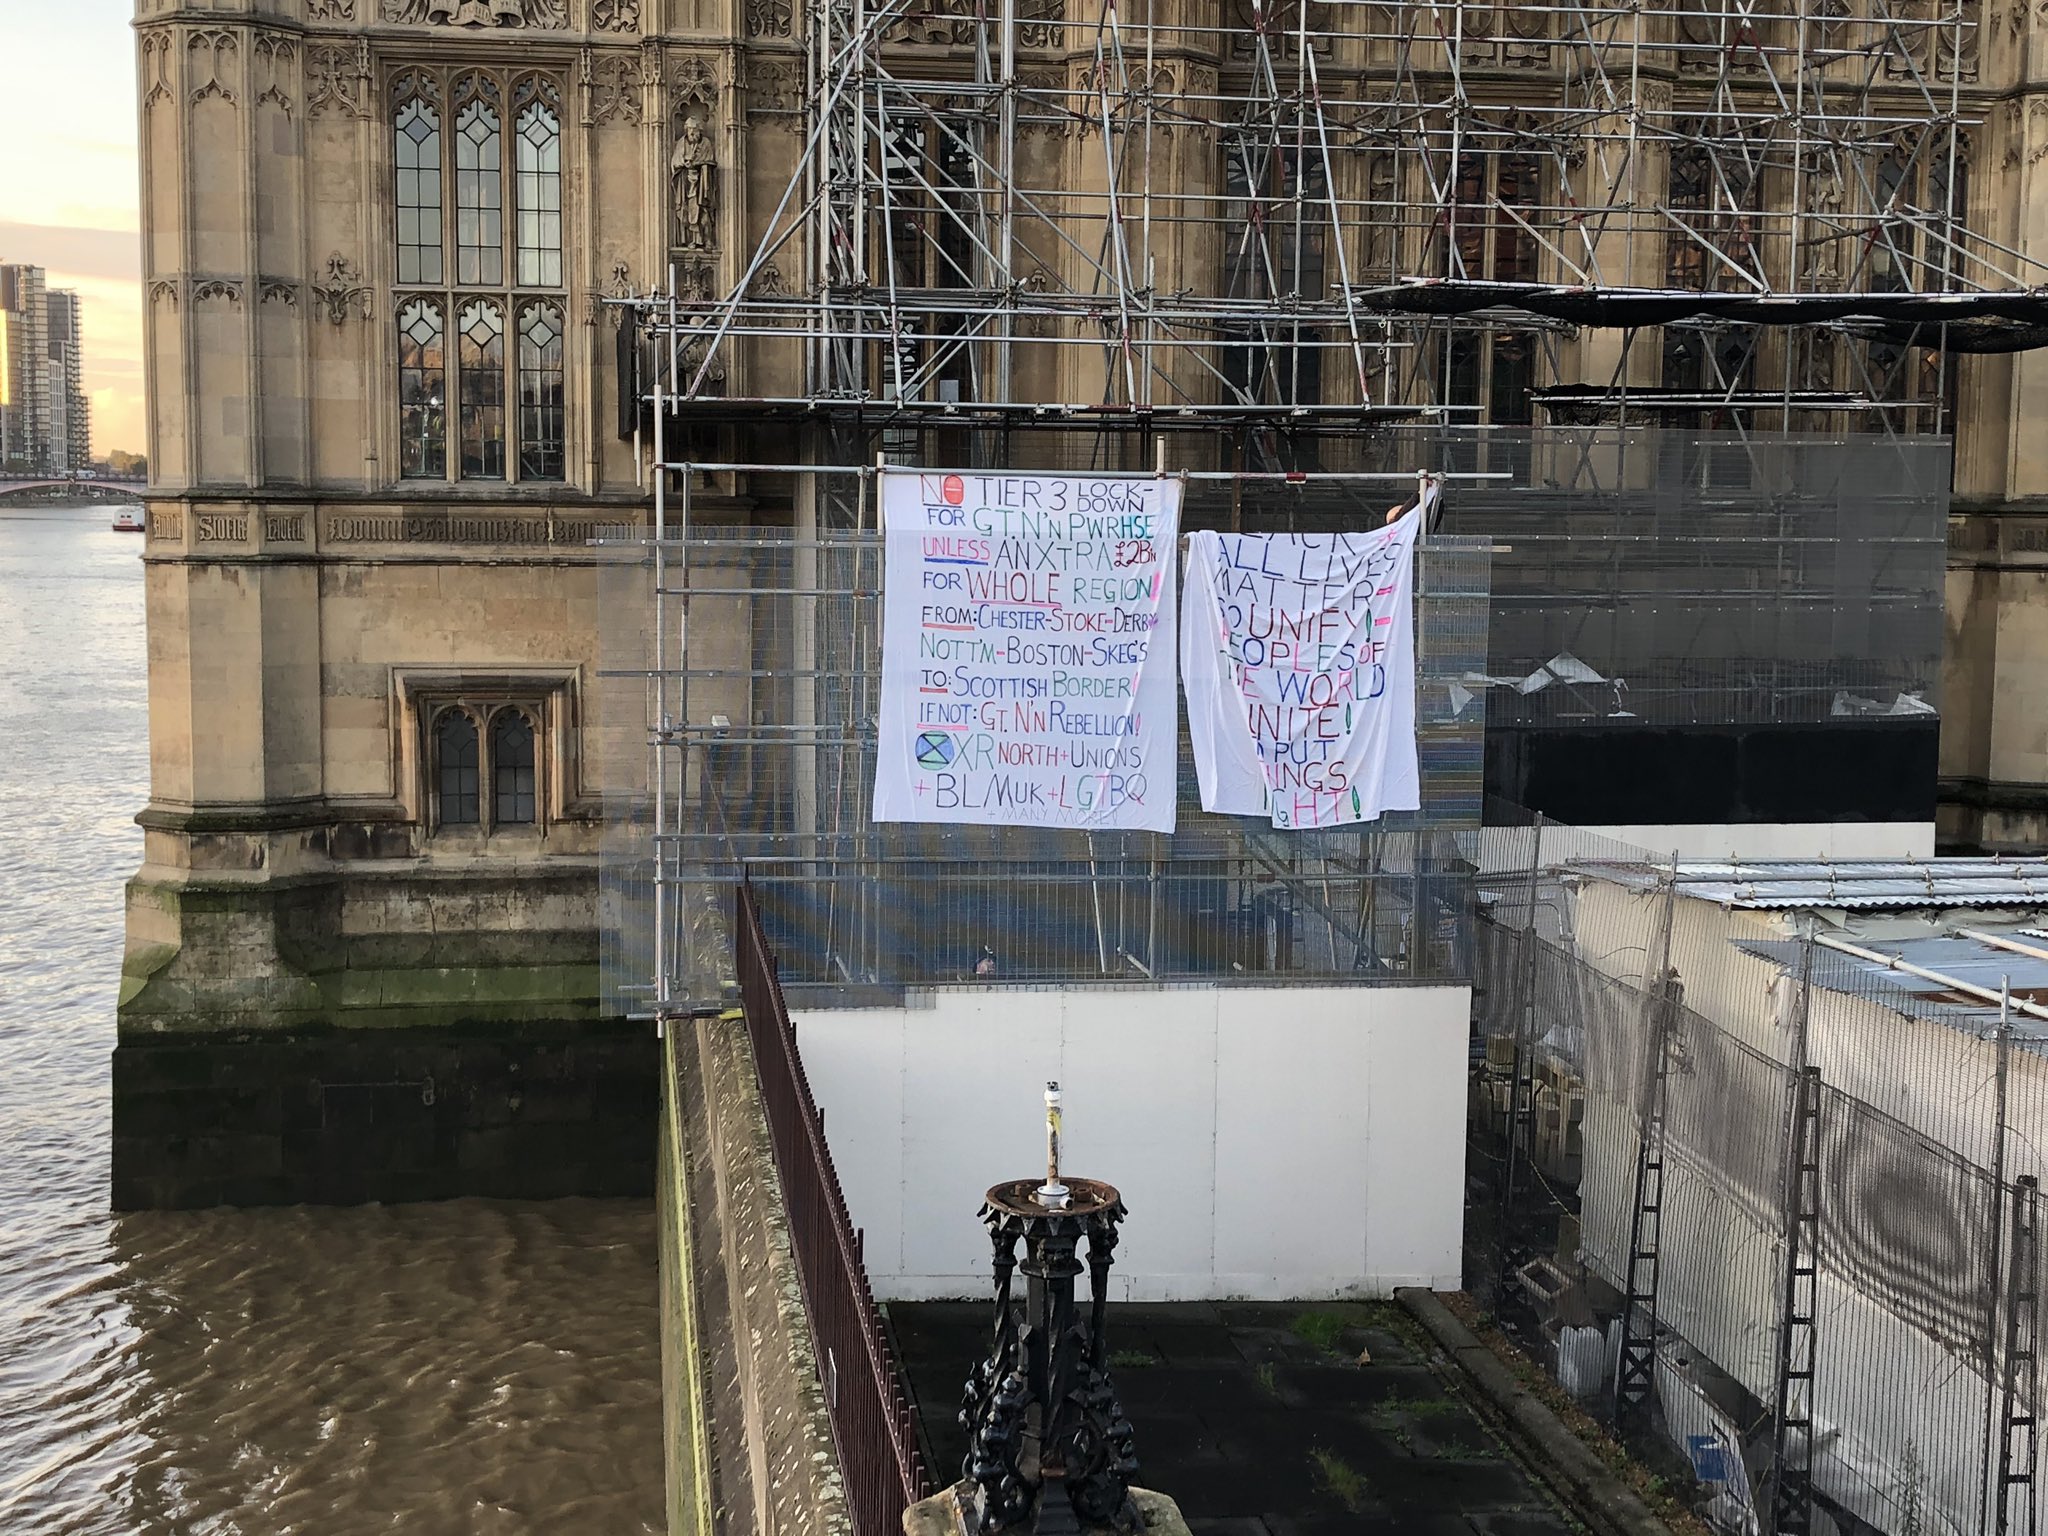 NO TIER 3 LOCK-
DOWN
FOR GT.N'n PWRHSE
UNLESS AN XTRA £2Bn
FOR WHOLE REGION!
FROM: CHESTER-STOKE-DERBY-
NOTT'M-BOSTON-SKEG'S
TO: SCOTTISH BORDER!
IF NOT: GT. N'n REBELLION!
XR NORTH + UNIONS
+ BLM UK + LGTBQ
+ MANY MORE!
ALL LIVES
MATTER-
UNIFY!-
PEOPLES OF
THE WORLD
UNITE!
PUT